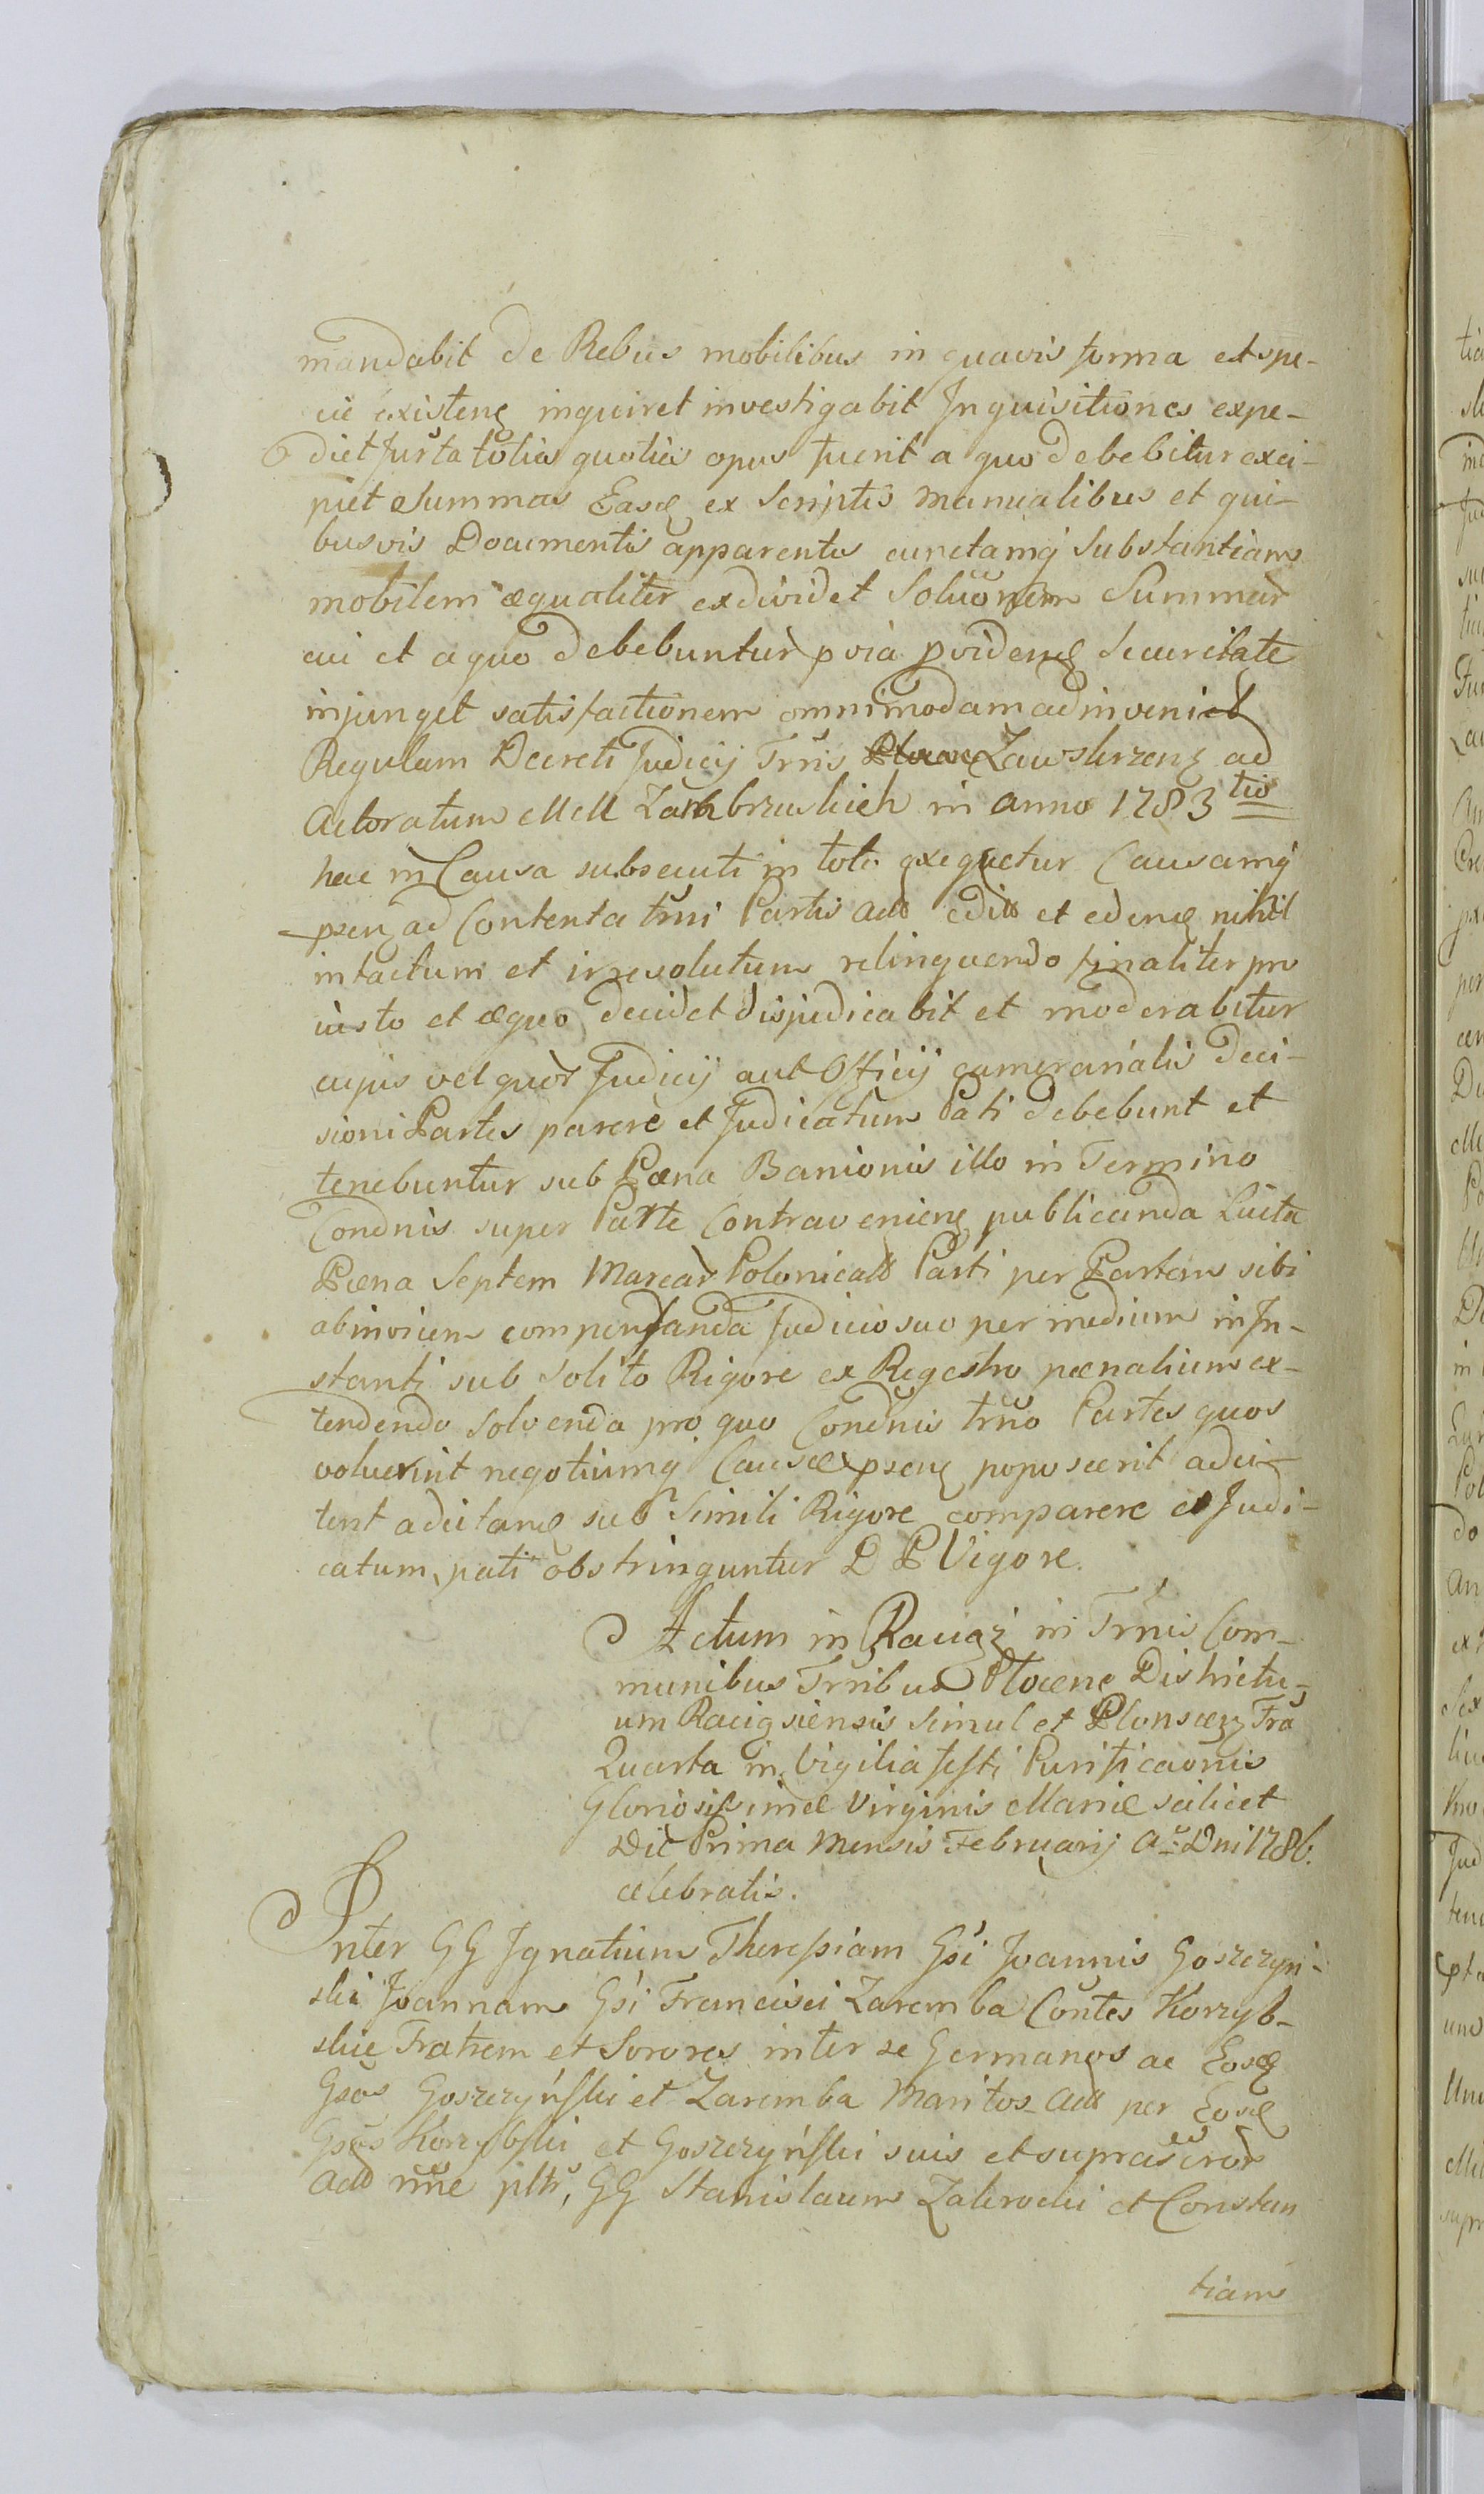 mandabit de Rebus mobilibus in quavis forma et spe-
cie existenę inquiret investigabit Inquisitiones expe-
diet Jurta totia quotia opus fuerit a quo debebitur exci-
piet Summas Easd ex Scriptis Manualibus et qui-
busvis Documentis apparentes cunctamq Substantiam
mobilem æqualiter exdividet Soluonem Summar
cui et a quo debebuntur pvia pvidenę Securitate
injunget satisfactionem omnimodam adinveniet
Regulam Decreti Judicij Trris Zawskrzenę ad
Actoratum MM Zambrzuskich in anno 1783 tio
hac in Causa subsecuti in toto exequetur Causamq
psenę ad Contenta trni Partis Actt editt et edenę nihil
intactum et irresolutum relinquendo finaliter pro
iusto et æquo decidet disjudicabit et moderabitur
cujus vel quor Judicij aut Officij camerarialis Deci-
sioni Partes parere et Judicatum Pati debebunt et
tenebuntur sub Pœna Banionis illo in Termino
Condnis super Parte Contravenienę publicanda Luita
Pœna Septem Marcar Polonicatt Parti per Partem sibi
abinvicem compensanda Judicio suo per medium in In-
stanti sub solito Rigore ex Regestro pœnalium ex-
tendendo Solvenda pro quo Condnis trno Partes quos
voluerint negotiumq Causæ psenę poposcerit adci-
tent adcitanę sub Simili Rigore comparere et Judi-
catum pati obstringuntur D P Vigore.
Actum in Raciąż in Trnis Com-
munibus Trribus Plocenę Districtu-
um Raciąsiensis Simul et Plonscenę Fra
Quarta in Vigilia festi Purificaonis
Gloriosissimæ Virginis Mariæ scilicet
Die Prima Mensis Februarij Ao Dni 1786.
celebratis.
Inter GG Ignatium Theresiam Gsi Joannis Goszczyń-
ski Joannam Gsi Francisci Zaremba Contes Korzyb-
skie Fratrem et Sorores inter se Germanos ac Eosd
Gsos Goszczyński et Zaremba Maritos Actt per Eosd
Gsos Korzybski et Goszczyński suis et suprascror
Actt nne pltr, GG Stanislaum Zakrocki et Constan
tiam